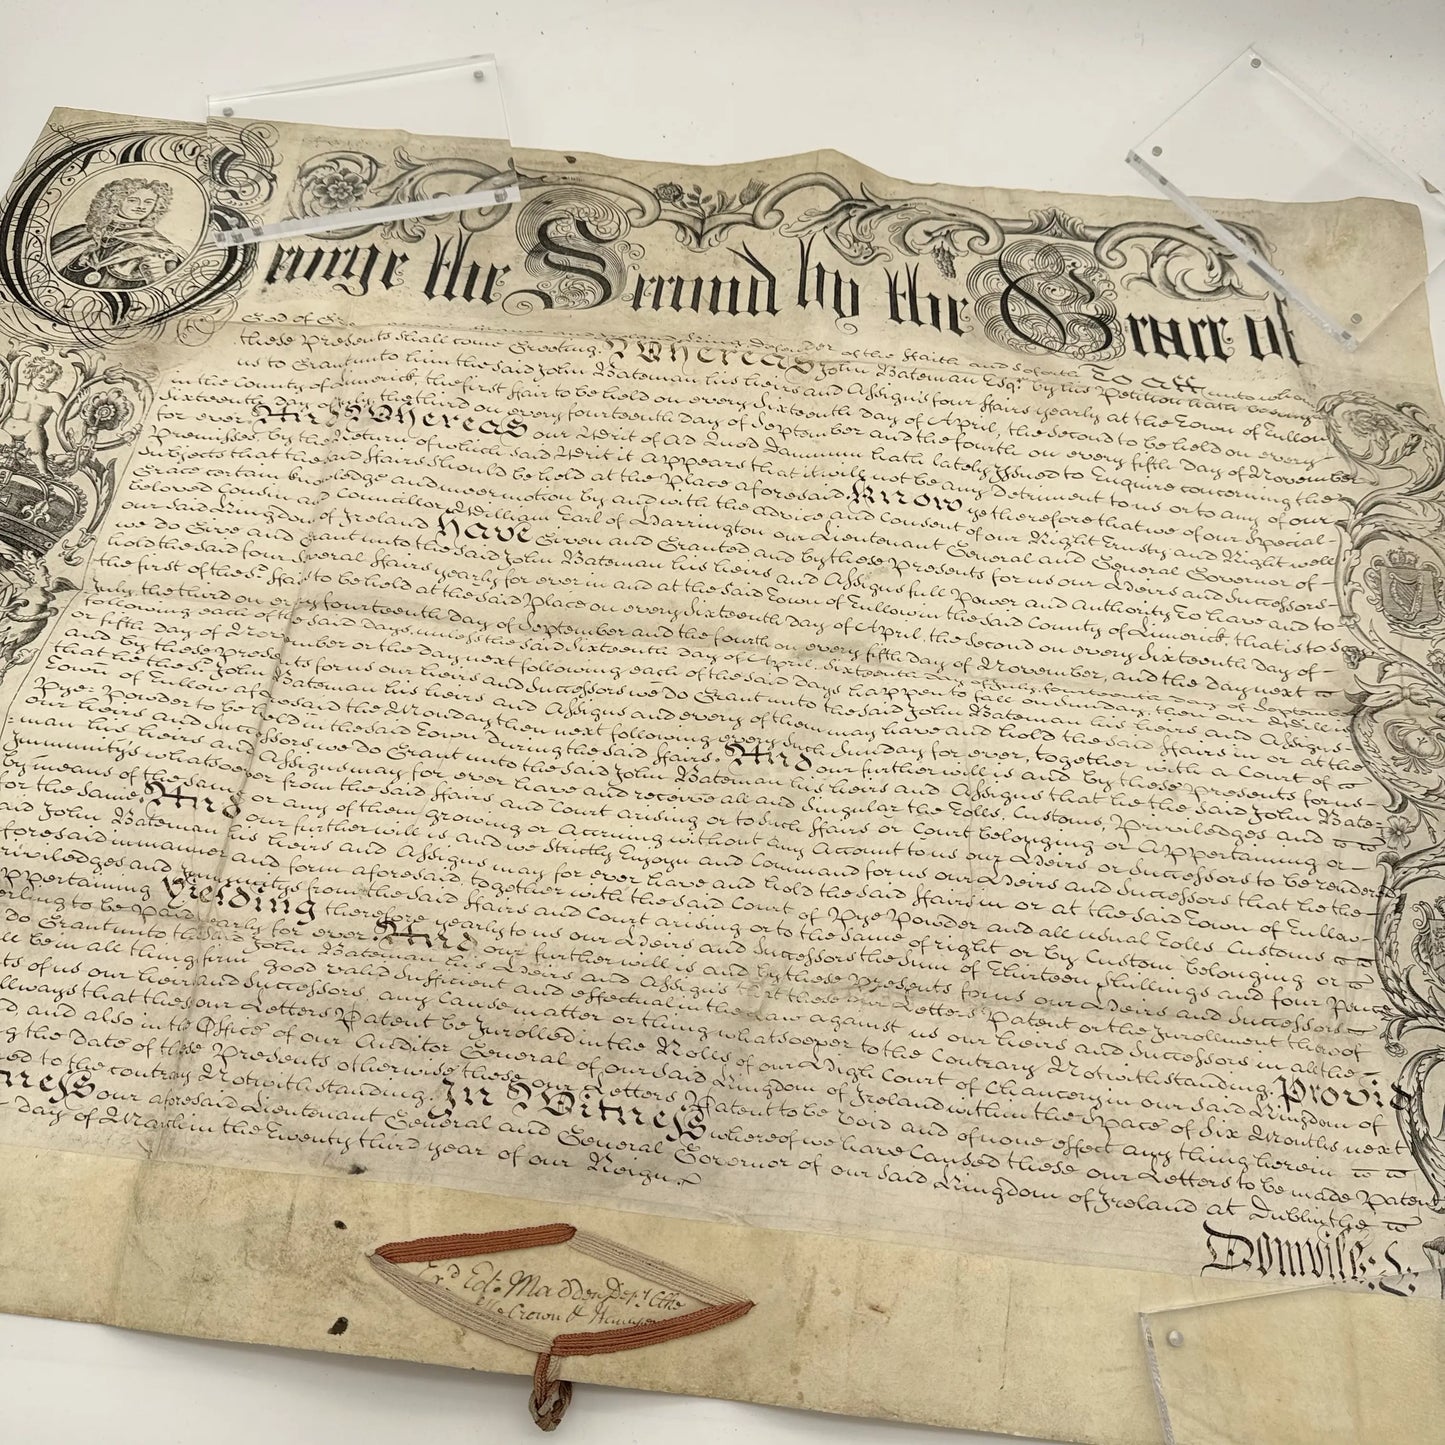 George the Second by the Grace of
God of Defender of the Faith and so forth To All unto whom
these Presents shall come Greeting. Whereas John Bateman Esqr. by his Petition hath
us to Grant unto him the said John Bateman his heirs and Assigns four ffairs yearly at the Town of Tullow
in the County of Limerick, the first ffair to be held on every Sixteenth day of April, the Second to be held on every
Sixteenth day of July the third on every fourteenth day of September and the fourth on every fifth day of November
for ever And Whereas our Writ of Ad Quod Damnum hath lately Issued to Enquire concerning the
Premisses, by the Return of which said Writ it Appears that it will not be any Detriment to us or to any of our
Subjects that the said ffairs should be held at the Place aforesaid. Know ye therefore that we of our Special
Grace certain knowledge and meer motion by and with the Advice and Consent of our Right Trusty and Right well
beloved Cousin and Councillor William Earl of Harrington our Lieutenant General and General Governor of
our said Kingdom of Ireland Have Given and Granted and by these Presents for us our Heirs and Successors
we do Give and Grant unto the said John Bateman his heirs and Assigns full Power and Authority To have and to
hold the said four several ffairs yearly for ever in and at the said Town of Tullow in the said County of Limerick, that is to say
the first of the sd. ffairs to be held at the said Place on every Sixteenth day of April, the second on every Sixteenth day of
July the third on every fourteenth day of September and the fourth on every fifth day of November, and the day next
following each of the said Days, unless the said Sixteenth day of April, Sixteenth day of July, fourteenth day of September
or fifth day of November or the day next following each of the said days happen to fall on Sunday, then our Will is
and by these Presents for us our heirs and Successors we do Grant unto the said John Bateman his heirs and Assigns
that he the sd. John Bateman his heirs and Assigns and every of them may have and hold the said ffairs in or at the
Town of Tullow aforesaid the Monday then next following every such Sunday for ever, together with a Court of
Pye-Powder to be held in the said Town during the said ffairs. And our further will is and by these Presents for us
our heirs and Successors we do Grant unto the said John Bateman his heirs and Assigns that he the said John Bate-
man his heirs and Assigns may for ever have and receive all and Singular the Tolls, Customs, Priviledges and
Immunitys whatsoever from the said ffairs and Court arising or to such ffairs or Court belonging or Appertaining or
by means of the same or any of them growing or Accruing without any Account to us our Heirs or Successors to be rendered
for the same And our further will is and we strictly Enjoyn and Command for us our Heirs and Successors that he the
said John Bateman his heirs and Assigns may for ever have and hold the said ffairs in or at the said Town of Tullow
aforesaid in manner and form aforesaid together with the said Court of Pye Powder and all usual Tolls Customs
Priviledges and Immunitys from the said ffairs and Court arising or to the same of right or by Custom belonging or
Appertaining Yielding therefore yearly to us our Heirs and Successors the sum of Thirteen Shillings and four Pence
to be paid yearly for ever And our further will is and by these Presents for us our Heirs and Successors
do Grant unto the said John Bateman his Heirs and Assigns that these our Letters Patent or the Inrollment thereof
be in all things firm good valid sufficient and effectual in the Law against us our heirs and Successors in all the
of us our heirs and Successors, any Cause matter or thing whatsoever to the Contrary Notwithstanding. Provid
allways that these our Letters Patent be Inrolled in the Rolls of our High Court of Chancery in our said Kingdom of
and also in the Office of our Auditor General of our said Kingdom of Ireland within the space of Six Months next
the Date of these Presents otherwise these our Letters Patent to be void and of none effect any thing herein
to the contrary Notwithstanding. In Witness whereof we have Caused these our Letters to be made Patent
our aforesaid Lieutenant General and General Governor of our said Kingdom of Ireland at Dublin the
day of March in the Twenty third year of our Reign.
Domvile
Exd. Edd. Madden Depy. Clk
Crown & Hanaper